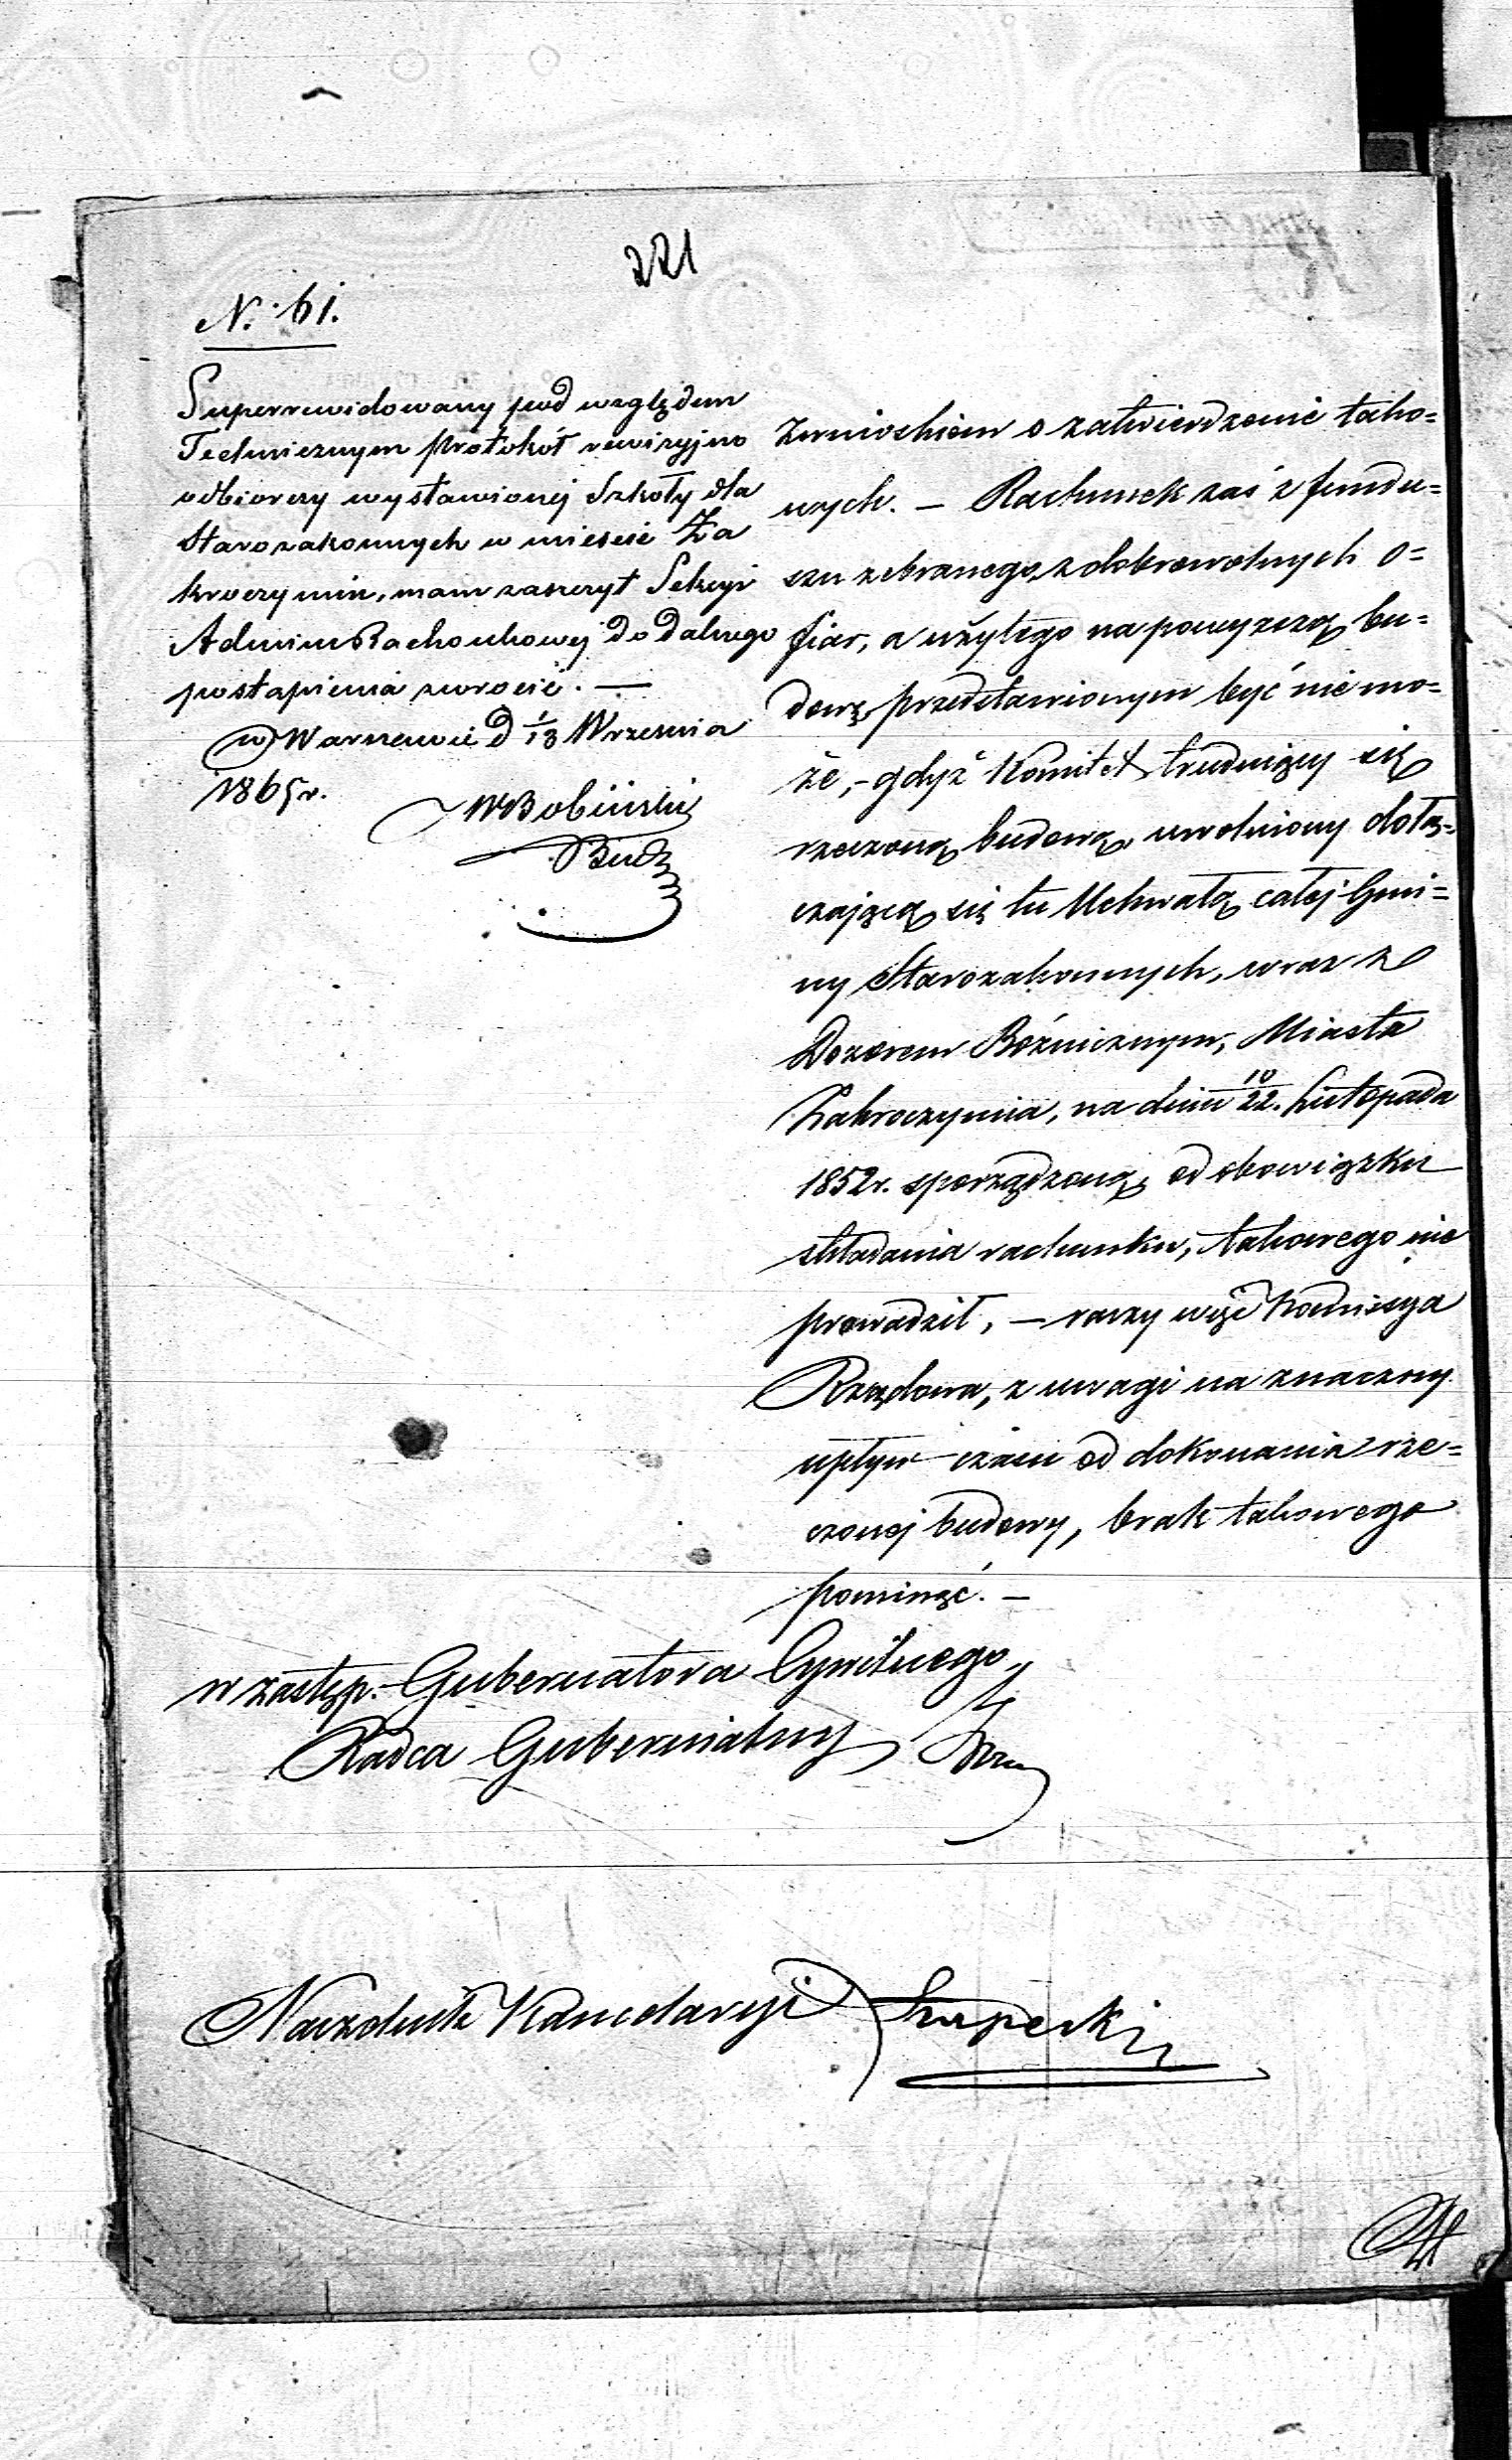 221
N. 61.
Superrewidowany pod względem
Technicznym protokół rewizyjno
odbiorczy wystawionej Szkoły dla
Starozakonnych w mieście Za
kroczymiu, mam zaszczyt Sekcyi
Admin Rachonkowej do dalszego
postąpienia zwrócić. —
w Warszawie d 1/13 Wrzesnia
1865 r.
WBobiński
Bud
z wnioskiem o zatwierdzenie tako=
wych. — Rachunek zaś z fundu=
szu zebranego z dobrowolnych o=
fiar, a użytego na powyzszą bu=
dowę, przedstawionym być nie mo=
że, – gdyż Komitet trudniący się
rzeczoną budową, uwolniony dołą=
czającą się tu Uchwałą całej Gmi=
ny Starozakonnych, wraz z
Dozorem Bóżniczym, Miasta
Zakroczymia, na dniu 10/22. Listopada
1852 r. sporządzoną, od obowiązku
składania rachunku, takowego nie
prowadził, — raczy więc Kommissya
Rządowa, z uwagi na znaczny
upływ czasu od dokonania rze=
czonej budowy, brak takowego
pominąć. —
w zastęp. Gubernatora Cywilnego
Radca Gubernialny
Naczelnik Kancelaryi